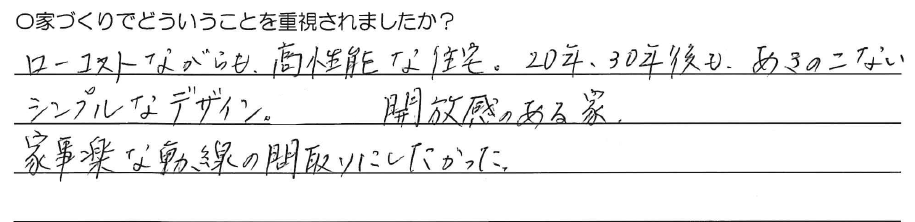 ○家づくりでどういうことを重視されましたか？
ローコストながらも、高性能な住宅。20年、30年後も、あきのこない
シンプルなデザイン。　開放感のある家。
家事楽な動線の間取りにしたかった。